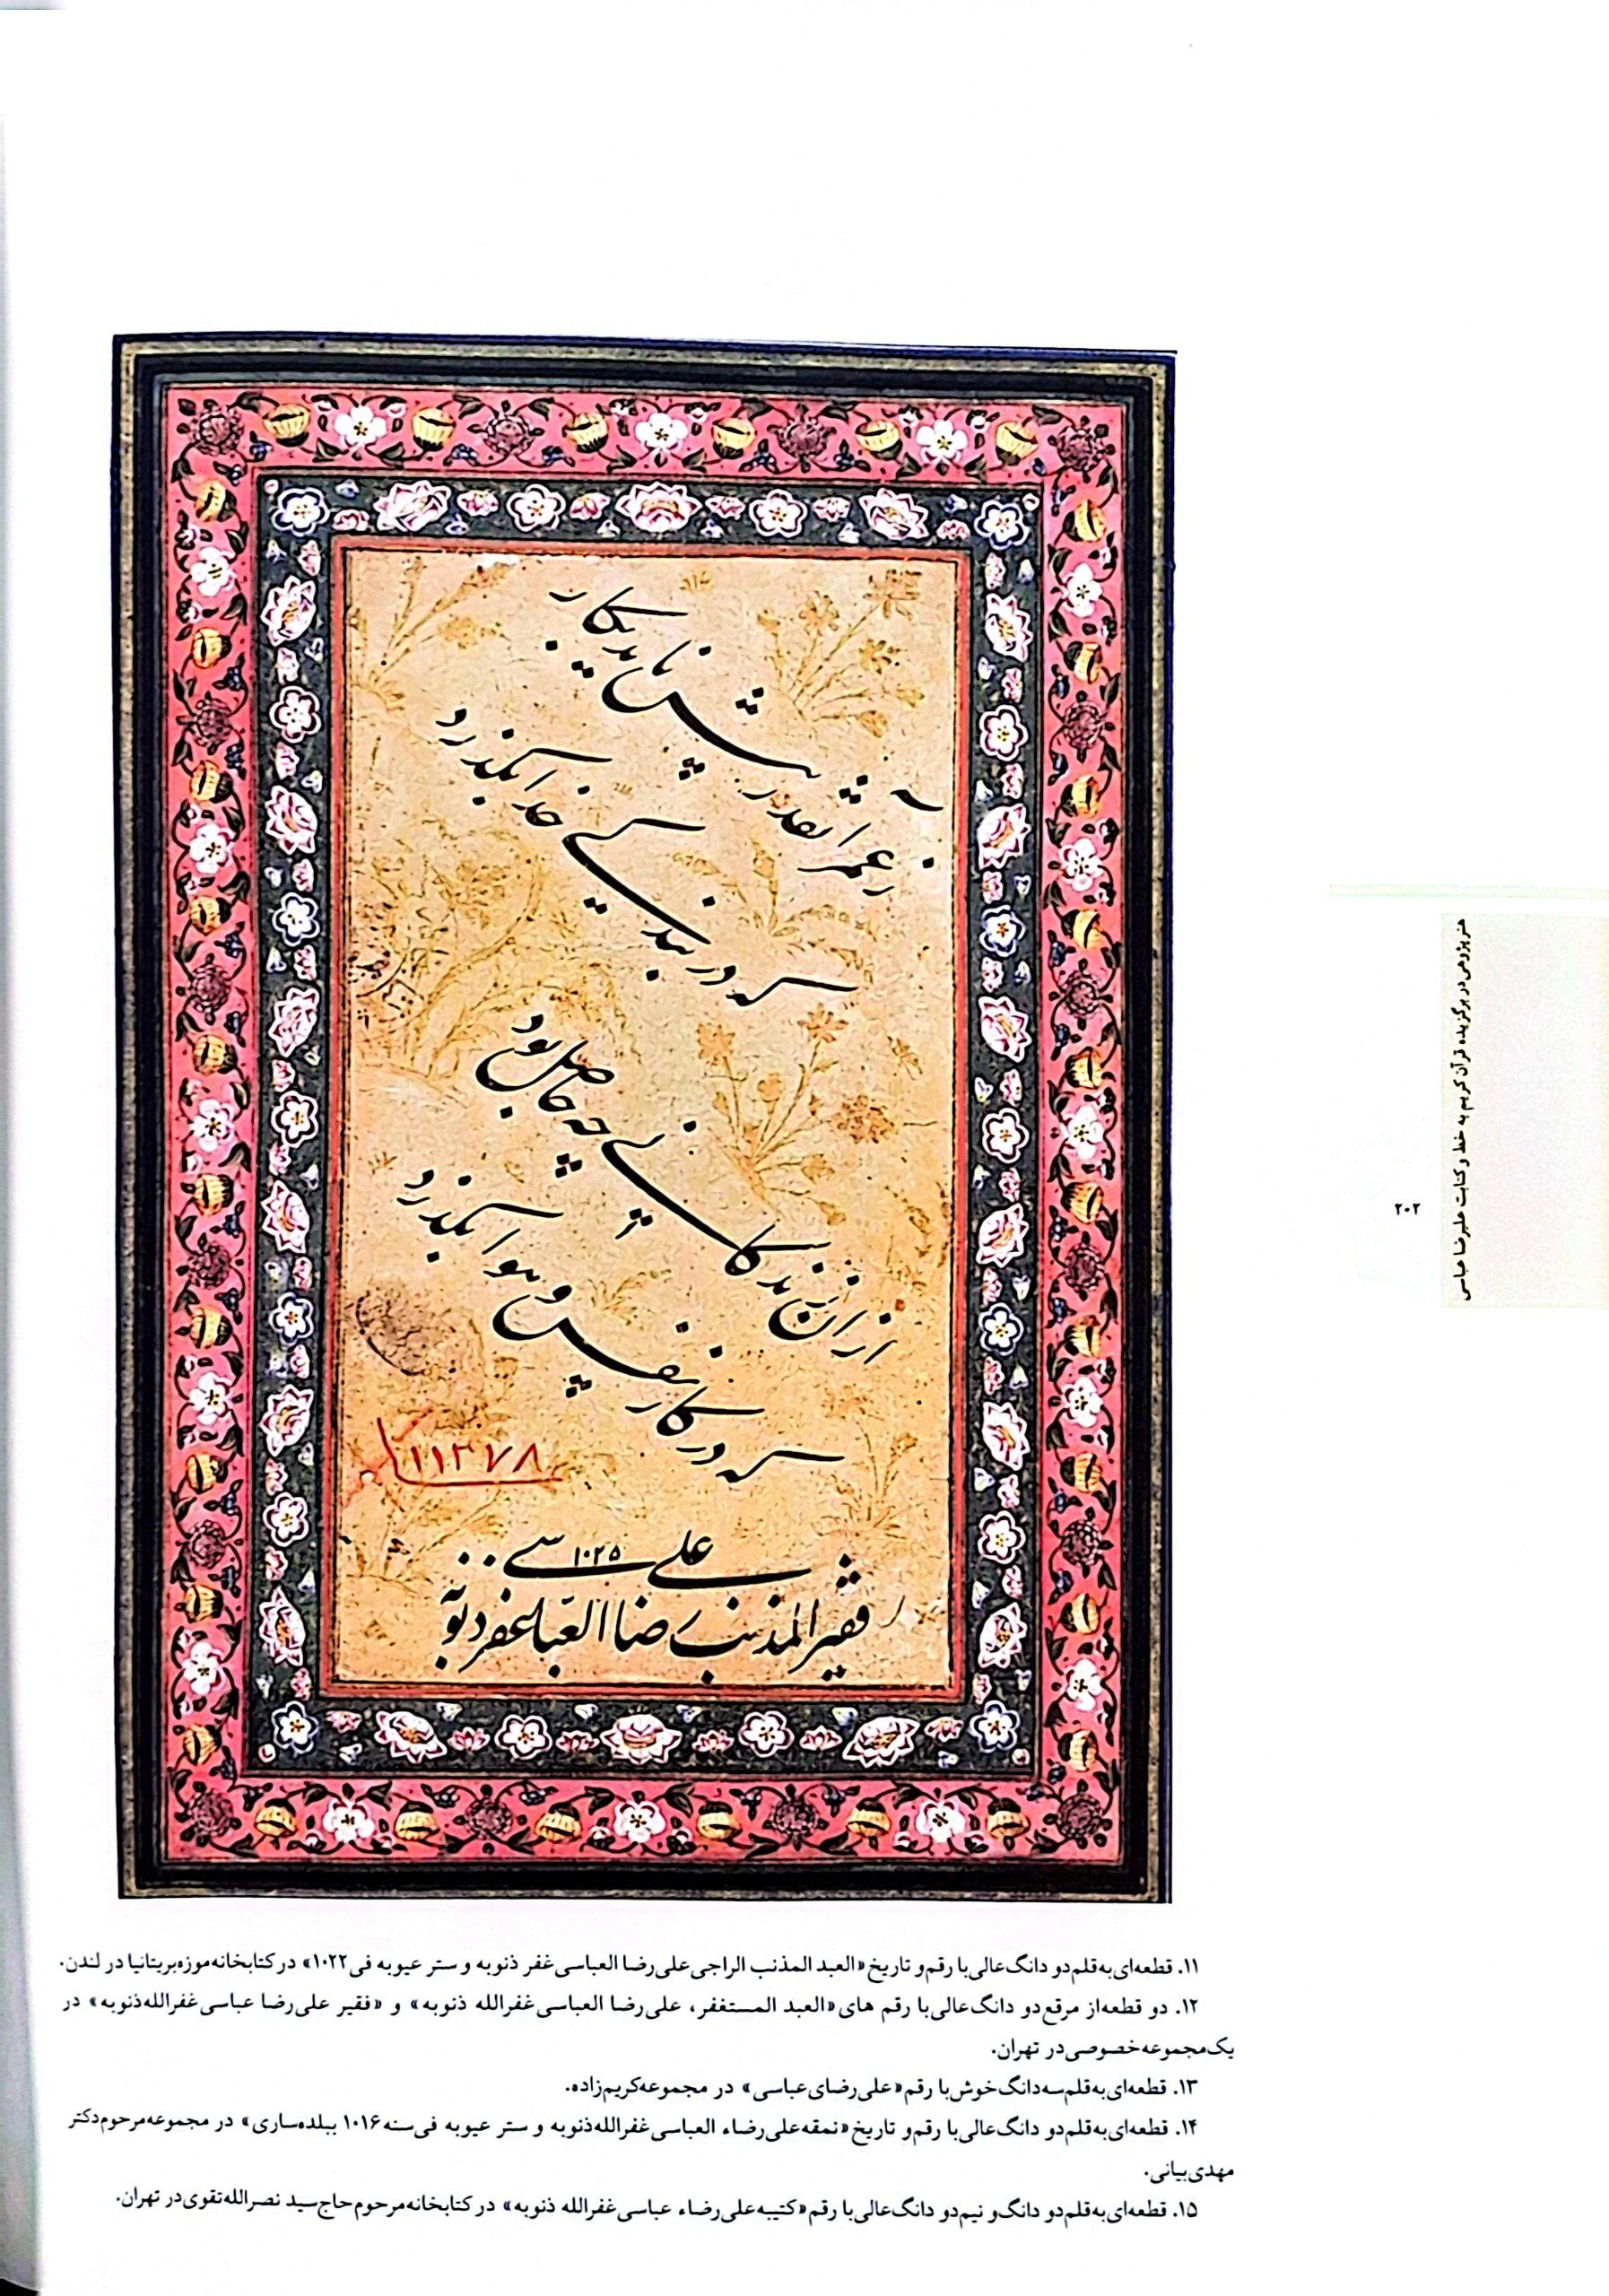 ز عمر آنقدر بیش ناید بکار
که در بندگی خدا بگذرد
از این زندگانی چه حاصل بود
که در کار نفس و هوا بگذرد
۱۱۲۷۸
فقیر المذنب علی رضا العباسی غفر ذنوبه ۱۰۲۵
هنرپژوهی در برگزیده قرآن کریم به خط و کتابت علیرضا عباسی
۲۰۲
۱۱. قطعه‌ای به قلم دو دانگ عالی با رقم و تاریخ «العبد المذنب الراجی علی رضا العباسی غفر ذنوبه و ستر عیوبه فی ۱۰۲۲» در کتابخانه موزه بریتانیا در لندن.
۱۲. دو قطعه از مرقع دو دانگ عالی با رقم های «العبد المستغفر، علی رضا العباسی غفرالله ذنوبه» و «فقیر علی رضا عباسی غفرالله ذنوبه» در
یک مجموعه خصوصی در تهران.
۱۳. قطعه‌ای به قلم سه دانگ خوش با رقم «علی رضای عباسی» در مجموعه کریم‌زاده.
۱۴. قطعه‌ای به قلم دو دانگ عالی با رقم و تاریخ «نمقه علی رضاء العباسی غفرالله ذنوبه و ستر عیوبه فی سنه ۱۰۱۶ ببلده ساری» در مجموعه مرحوم دکتر
مهدی بیانی.
۱۵. قطعه‌ای به قلم دو دانگ و نیم دو دانگ عالی با رقم «کتیبه علی رضاء عباسی غفرالله ذنوبه» در کتابخانه مرحوم حاج سید نصرالله تقوی در تهران.